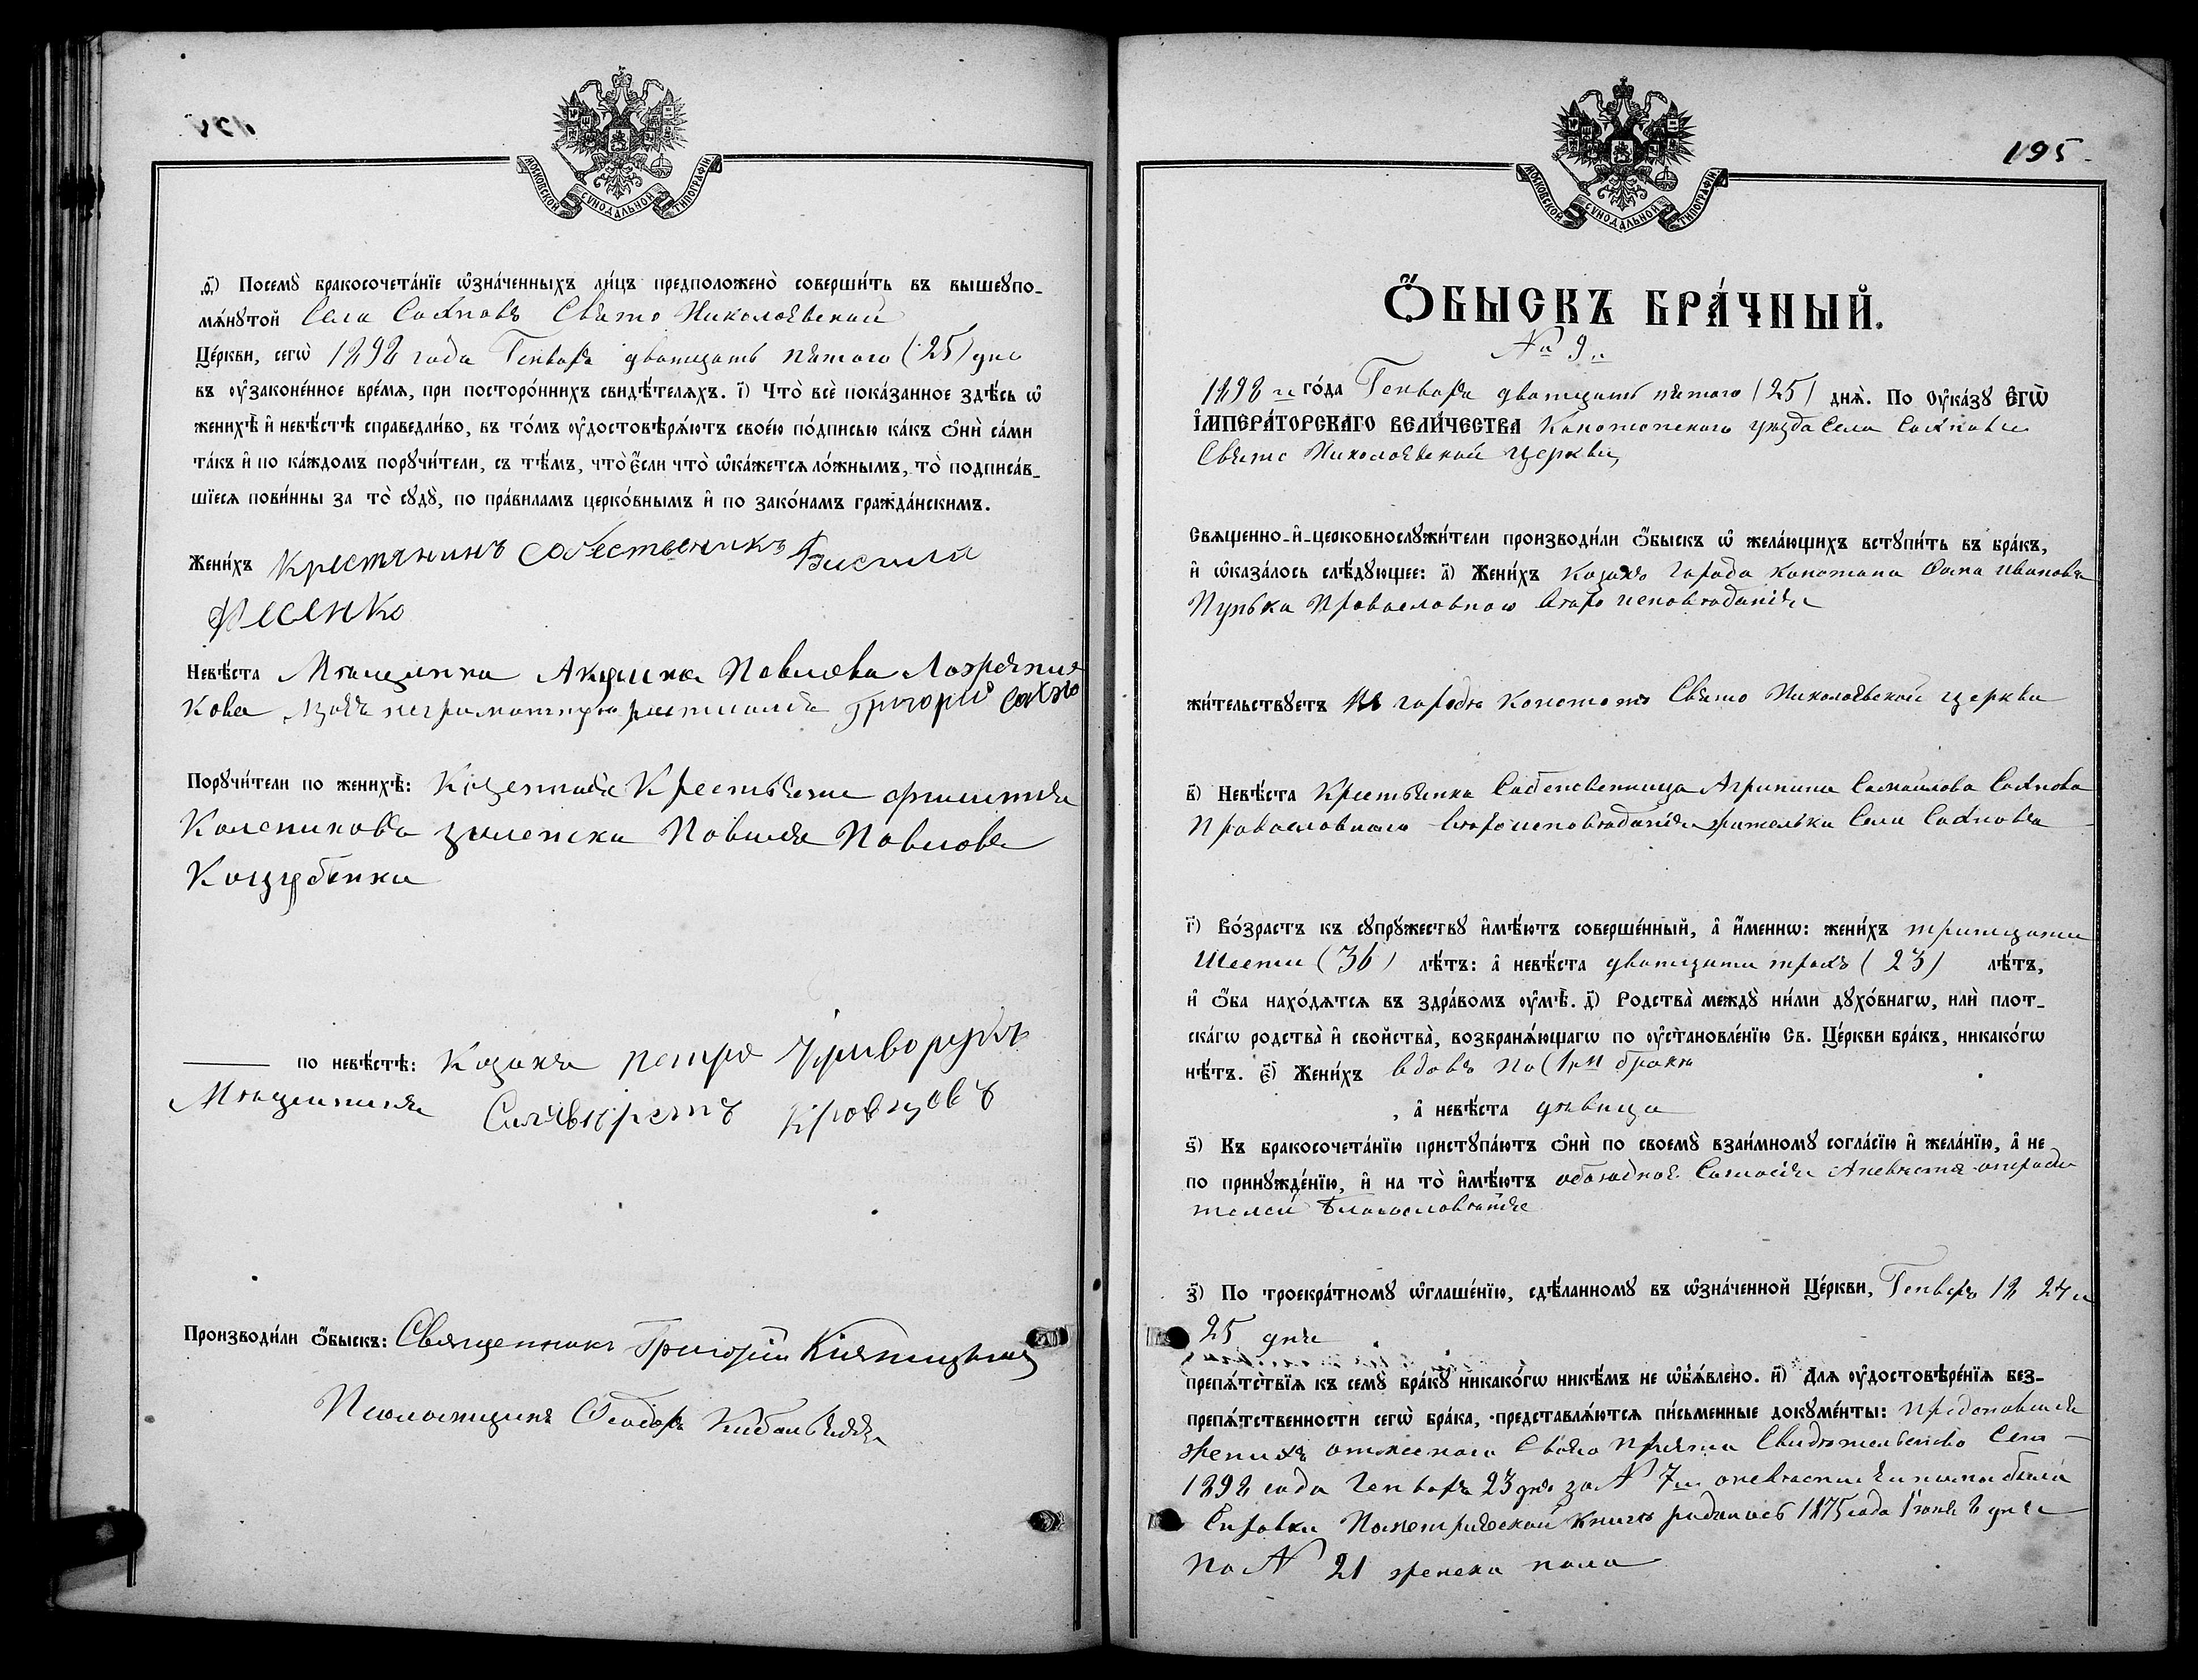 МОСКОВСКОЙ СѴНОДАЛЬНОЙ ТИПОГРАФІИ
ѳ҃) Посемꙋ̀ бракосочета́нїе ѡ҆зна́ченныхъ ли́цъ предположено̀ соверши́ть въ вышеꙋпо-
мѧ́нꙋтой Села Сахновъ Свято Николаевской
Це́ркви, сегѡ̀ 1898 года Генваря дватцать пятого (25) дня
въ ᲂу҆законе́нное вре́мѧ, при посторо́ннихъ свидѣ́телѧхъ. і҃) Что̀ всѐ пока́занное здѣ́сь ѡ҆
женихѣ̀ и҆ невѣ́стѣ справедли́во, въ то́мъ ᲂу҆достовѣрѧ́ютъ свое́ю по́дписью ка́къ ѻ҆нѝ са́ми
та́къ и҆ по ка́ждомъ порꙋчи́тели, съ тѣ́мъ, что̀ є҆́сли что̀ ѡ҆ка́жетсѧ ло́жнымъ, то̀ подписа́в-
шїесѧ пови́нны за то̀ сꙋдꙋ̀, по пра́виламъ церко́внымъ и҆ по зако́намъ гражда́нскимъ.
Жени́хъ Крестянинъ Собественикъ Василий
Фесенко
Невѣ́ста Мѣщанка Акулина Павлова
кова Григорій Сахно
Порꙋчи́тели по женихѣ̀: Крестьяне
Колесникова Павла Павлова
Коцубенка
по невѣ́стѣ: Козакъ петро Криворучъ
Мѣщанинъ Кровцовъ
Производи́ли ѻ҆́быскъ: Священникъ Григорій
Псаломщикъ Ѳеодоръ
195
МОСКОВСКОЙ СѴНОДАЛЬНОЙ ТИПОГРАФІИ
Ѻ҆́БЫСКЪ БРА́ЧНЫЙ.
№ 9й
1898 го́да Генваря дватцать пятого (25) днѧ̀. По Оу҆ка́зꙋ Е҆ГѠ̀
І҆МПЕРА́ТОРСКАГО ВЕЛИ́ЧЕСТВА Конотопского уѣзда Села Сахновки
Свято Николаевской церкви
Свѧщенно-и҆-церковнослꙋжи́тели производи́ли ѻ҆́быскъ ѡ҆ жела́ющихъ встꙋпи́ть въ бра́къ,
и҆ ѡ҆каза́лось слѣ́дꙋющее: а҃) Жени́хъ Козакъ города Конотопа Фома Ивановъ
Пунька Православного вѣроисповѣданія
жи́тельствꙋетъ въ городѣ Конотопѣ Свято Николаевской церкви
в҃) Невѣ́ста Крестьянка Собственница Агрипина Самойлова Сахнова
Православного вѣроисповѣданія жителька Села Сахновки
г҃) Во́зрастъ къ сꙋпрꙋ́жествꙋ и҆мѣ́ютъ соверше́нный, а҆ и҆́меннѡ: жени́хъ тритцати
Шести (36) лѣ́тъ: а҆ невѣ́ста дватцати трохъ (23) лѣ́тъ,
и҆ ѻ҆́ба нахо́дѧтсѧ въ здра́вомъ ᲂу҆мѣ̀. д҃) Родства̀ междꙋ̀ ни́ми дꙋхо́внагѡ, илѝ плот-
ска́гѡ родства̀ и҆ свойства̀, возбранѧ́ющагѡ по ᲂу҆становле́нїю Св. Це́ркви бра́къ, никако́гѡ
нѣ́тъ. є҃) Жени́хъ вдовъ по 1м бракѣ
, а҆ невѣ́ста дѣвица
ѕ҃) Къ бракосочета́нїю пристꙋпа́ютъ ѻ҆нѝ по своемꙋ̀ взаи́мномꙋ согла́сїю и҆ жела́нїю, а҆ не
по принꙋжде́нїю, и҆ на то̀ и҆мѣ́ютъ обоюдное Согласія Аневѣста отроди
телей благословѣніе
з҃) По троекра́тномꙋ ѡ҆глаше́нїю, сдѣ́ланномꙋ въ ѡ҆зна́ченной Це́ркви, Генваря 18 24 и
25 дня
препѧ́тствїѧ къ семꙋ̀ бра́кꙋ никако́гѡ никѣ́мъ не ѡ҆б̾ѧ́влено. и҃) Для ᲂу҆достовѣре́нїѧ без-
препѧ́тственности сегѡ̀ бра́ка, представлѧ́ютсѧ пи́сьменные докꙋме́нты: предоставилъ
женихъ своего Свидѣтельство
1898 года Генваря 23 дня за № 7м
Справки Пометрической книгѣ родилась 1875 года Іюня дня
по № 21 женска пола